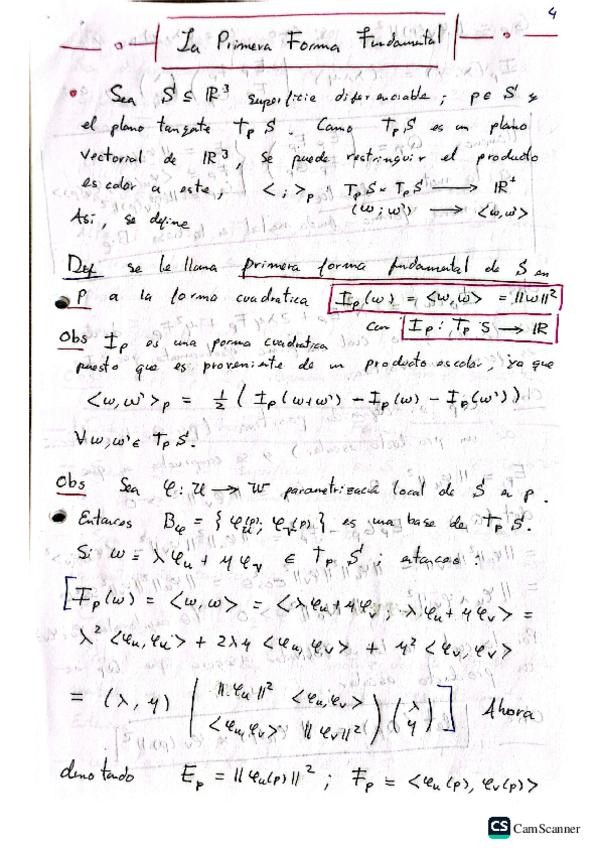 4
La Primera Forma Fundamental
• Sea S ⊆ ℝ³ superficie diferenciable; p ∈ S y
el plano tangente TpS. Como TpS es un plano
vectorial de ℝ³, se puede restringuir el producto
escalar a este, < ; >p TpS × TpS → ℝ⁺
(w; w') → <w,w'>
Así, se define
Def se le llama primera forma fundamental de S en
p a la forma cuadratica Ip(w) = <w,w> = ||w||²
con Ip : TpS → ℝ
Obs Ip es una forma cuadratica
puesto que es proveniente de un producto escolar, ya que
<w,w'>p = ½ ( Ip(w+w') − Ip(w) − Ip(w') )
∀ w,w' ∈ TpS.
Obs Sea φ: U → W parametrización local de S en p.
Entonces Bφ = { φu(p); φv(p) } es una base de TpS.
Si w = λφu + μφv ∈ TpS ; entonces:
[ Ip(w) = <w, w> = <λφu + μφv ; λφu + μφv> =
λ² <φu, φu> + 2λμ <φu, φv> + μ² <φv, φv>
= (λ, μ) ( ||φu||² <φu, φv>
<φu, φv> ||φv||² ) ( λ
μ ) ] Ahora
denotando Ep = ||φu(p)||² ; Fp = <φu(p), φv(p)>
CS CamScanner